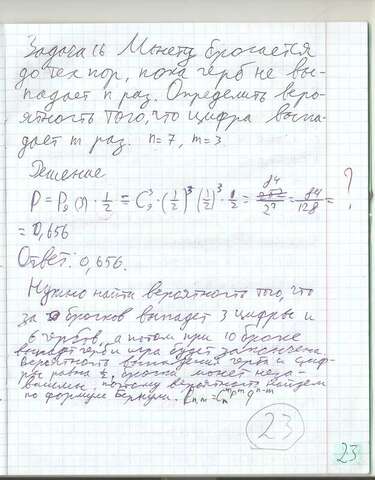 Задача 16 Монету бросается
до тех пор, пока герб не вы-
падает n раз. Определить веро-
ятность того, что цифра выпа-
дает m раз. n=7, m=3
Решение
P = P₉(3) · 1/2 = C₉³ · (1/2)³ (1/2)³ · 1/2 = 84/2⁷ = 84/128 = ?
= 0,656
Ответ: 0,656.
Нужно найти вероятность того, что
за 9 бросков выпадет 3 цифры и
6 гербов, а потом при 10 броске
выпадет герб и игра будет закончена
вероятность выпадения герба и циф-
ры равна 1/2, броски может неза-
висимы, поэтому вероятность найдем
по формуле Бернули.
23
23